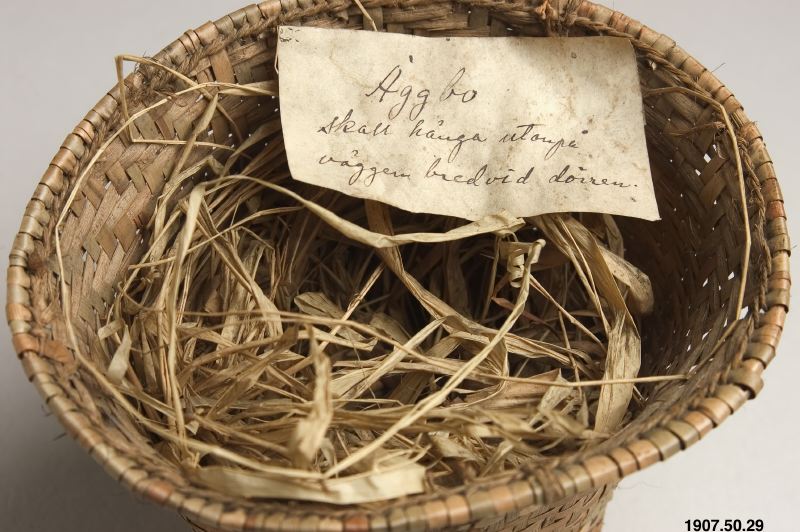 Äggbo
skall hänga utanpå
väggen bredvid dörren.
1907.50.29